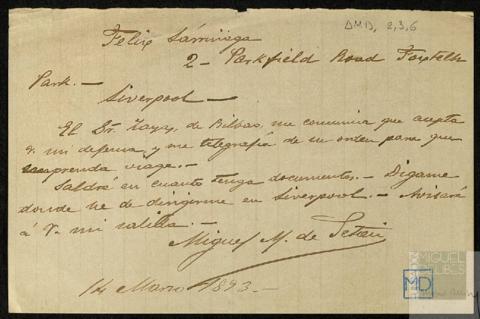 Felix Larrinaga
DMD, 2,3,6
2 - Parkfield Road Foxtelh
Park. -
Liverpool -
El Dr. Zayas, de Bilbao, me comunica que acepta
mi defensa y me telegrafía de su orden para que
emprenda viage. -
Saldré en cuanto tenga documentos. - Digame
donde he de dirigirme en Liverpool. - Avisaré
á V. mi salida. -
Miguel M. de Setien
14 Marzo 1893. -
MIGUEL
DELIBES
MD